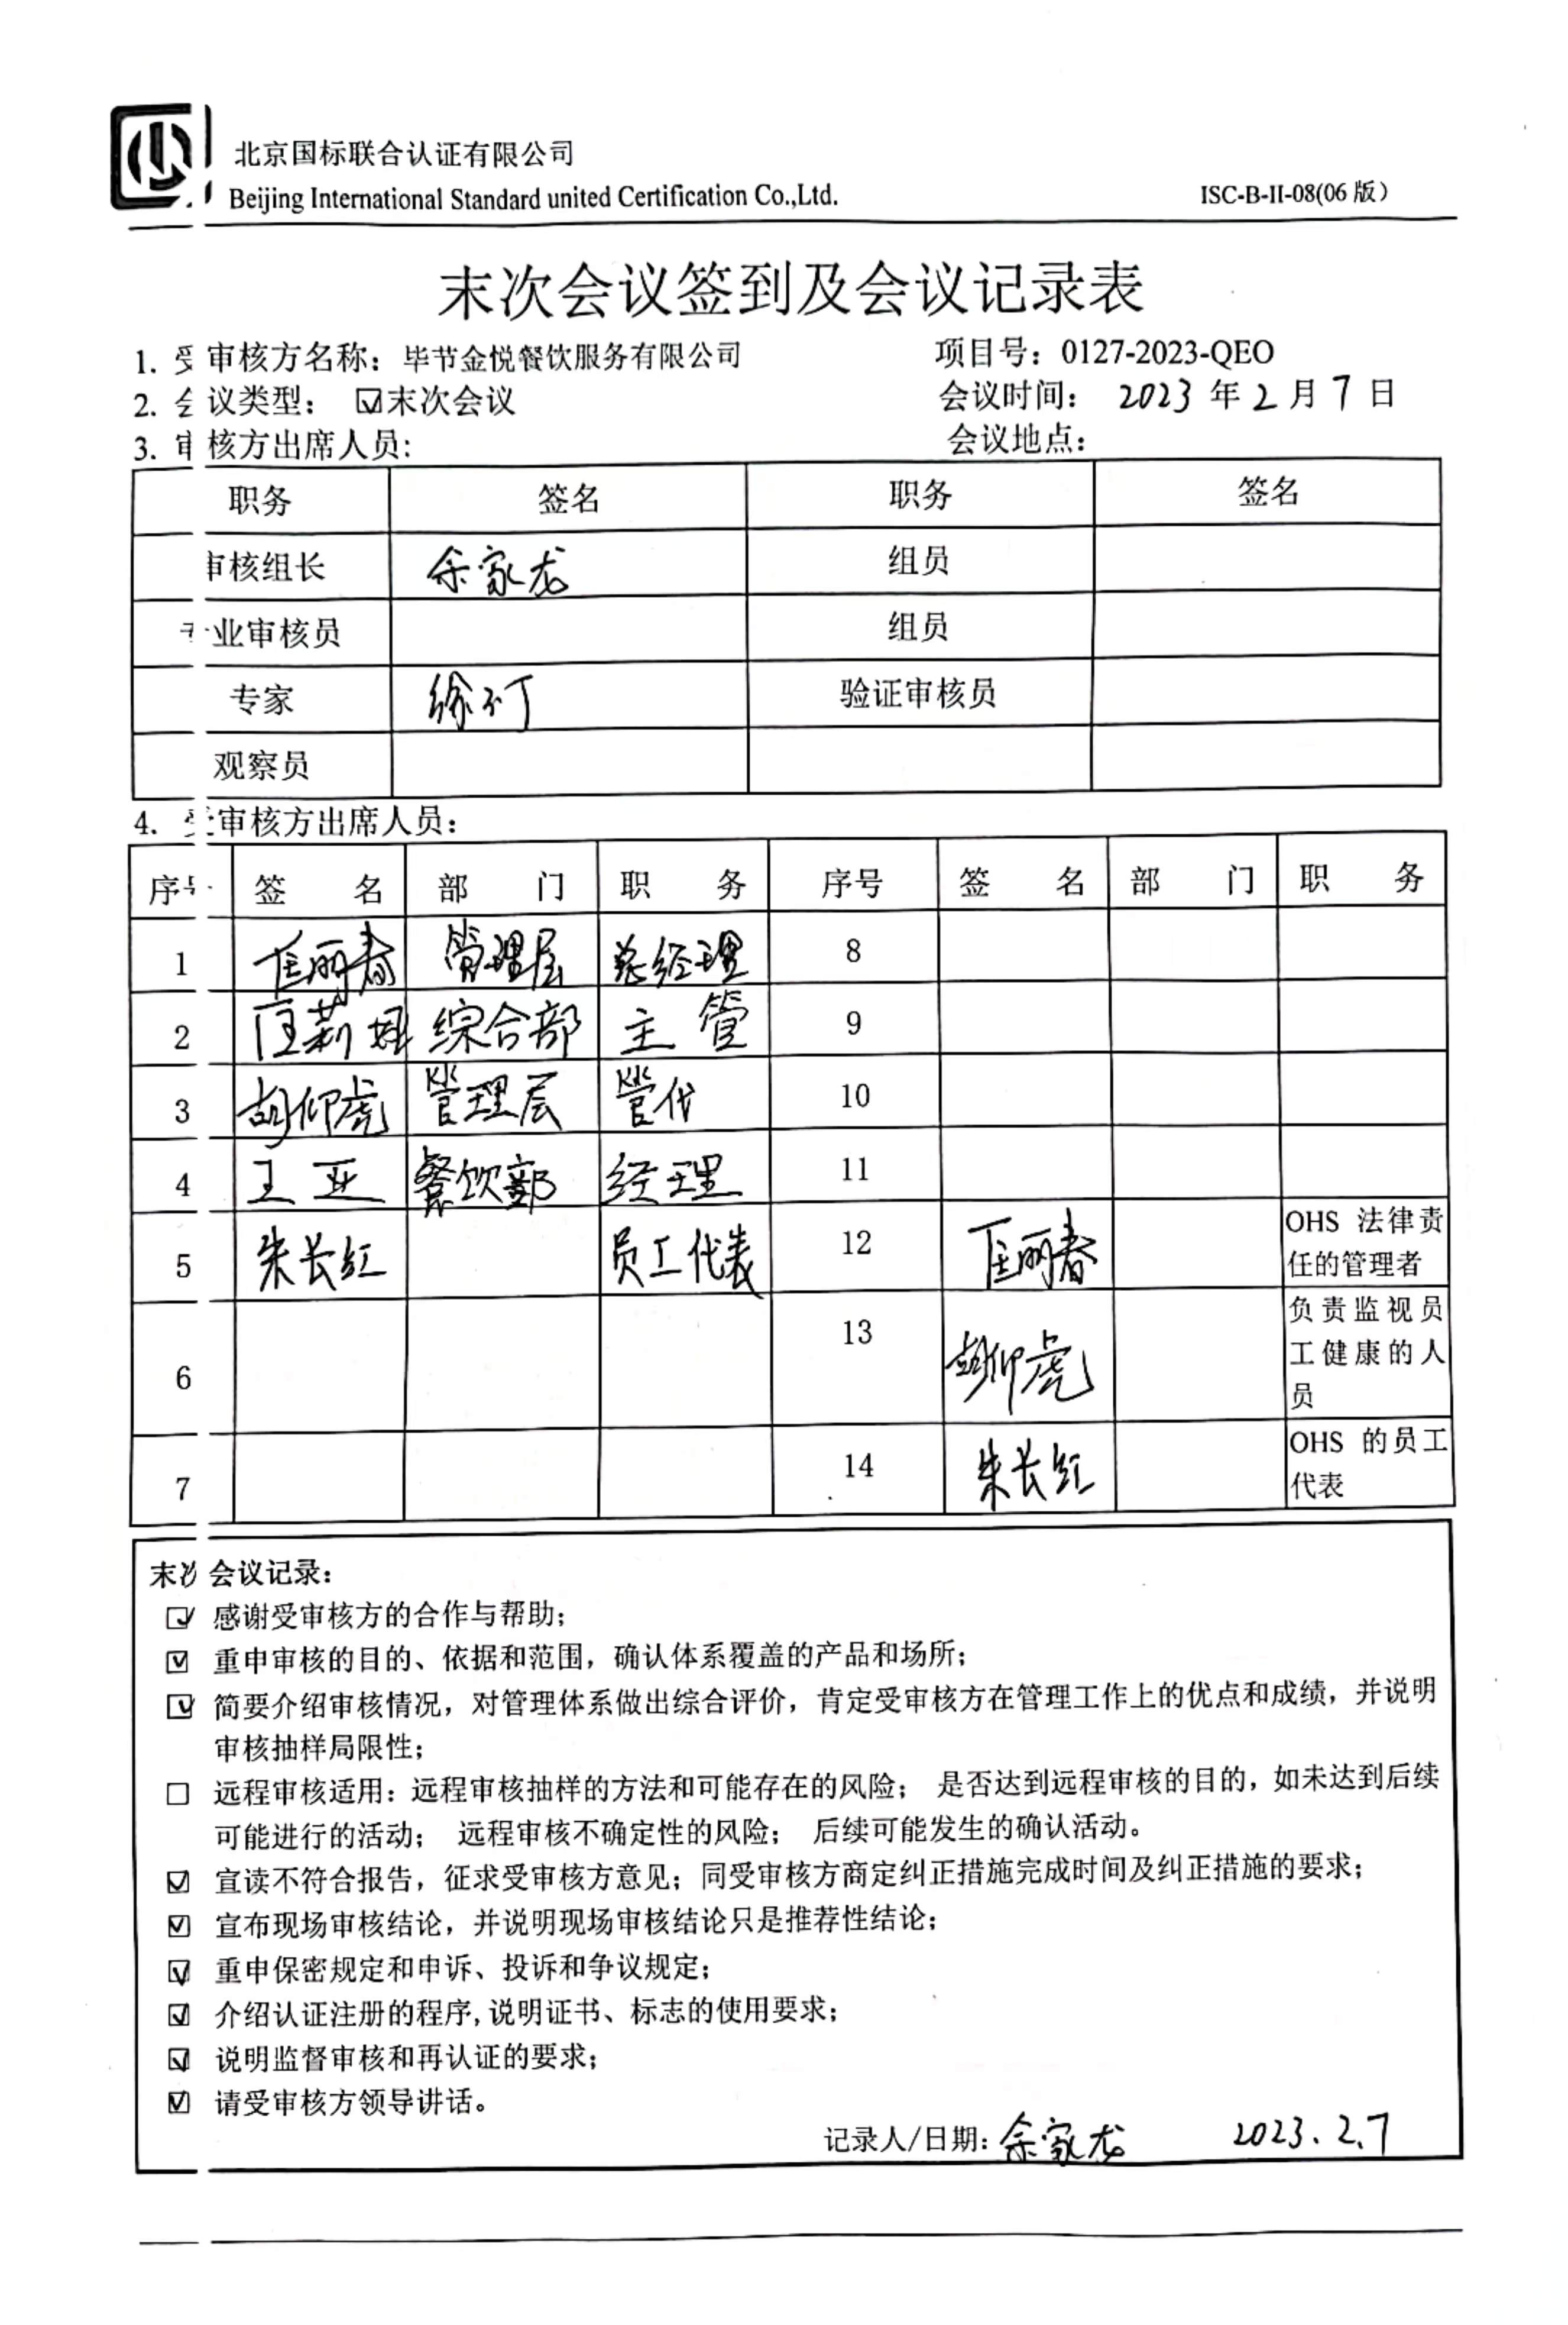 北京国标联合认证有限公司
Beijing International Standard united Certification Co.,Ltd. ISC-B-II-08(06版)
末次会议签到及会议记录表
1. 受审核方名称：毕节金悦餐饮服务有限公司 项目号：0127-2023-QEO
2. 会议类型： ☑末次会议 会议时间： 2023 年 2 月 7 日
3. 审核方出席人员: 会议地点：
职务 签名 职务 签名
审核组长 余家龙 组员
专业审核员 组员
专家 验证审核员
观察员
4. 受审核方出席人员：
序号 签 名 部 门 职 务 序号 签 名 部 门 职 务
1 管理层 总经理 8
2 综合部 主管 9
3 胡仰虎 管理层 管代 10
4 王亚 餐饮部 经理 11
5 朱长红 员工代表 12 OHS 法律责
任的管理者
6 13 胡仰虎 负责监视员
工健康的人
员
7 14 朱长红 OHS 的员工
代表
末次会议记录：
☑ 感谢受审核方的合作与帮助；
☑ 重申审核的目的、依据和范围，确认体系覆盖的产品和场所；
☑ 简要介绍审核情况，对管理体系做出综合评价，肯定受审核方在管理工作上的优点和成绩，并说明
审核抽样局限性；
☐ 远程审核适用：远程审核抽样的方法和可能存在的风险； 是否达到远程审核的目的，如未达到后续
可能进行的活动； 远程审核不确定性的风险； 后续可能发生的确认活动。
☑ 宣读不符合报告，征求受审核方意见；同受审核方商定纠正措施完成时间及纠正措施的要求；
☑ 宣布现场审核结论，并说明现场审核结论只是推荐性结论；
☑ 重申保密规定和申诉、投诉和争议规定；
☑ 介绍认证注册的程序,说明证书、标志的使用要求；
☑ 说明监督审核和再认证的要求；
☑ 请受审核方领导讲话。
记录人/日期：余家龙 2023.2.7